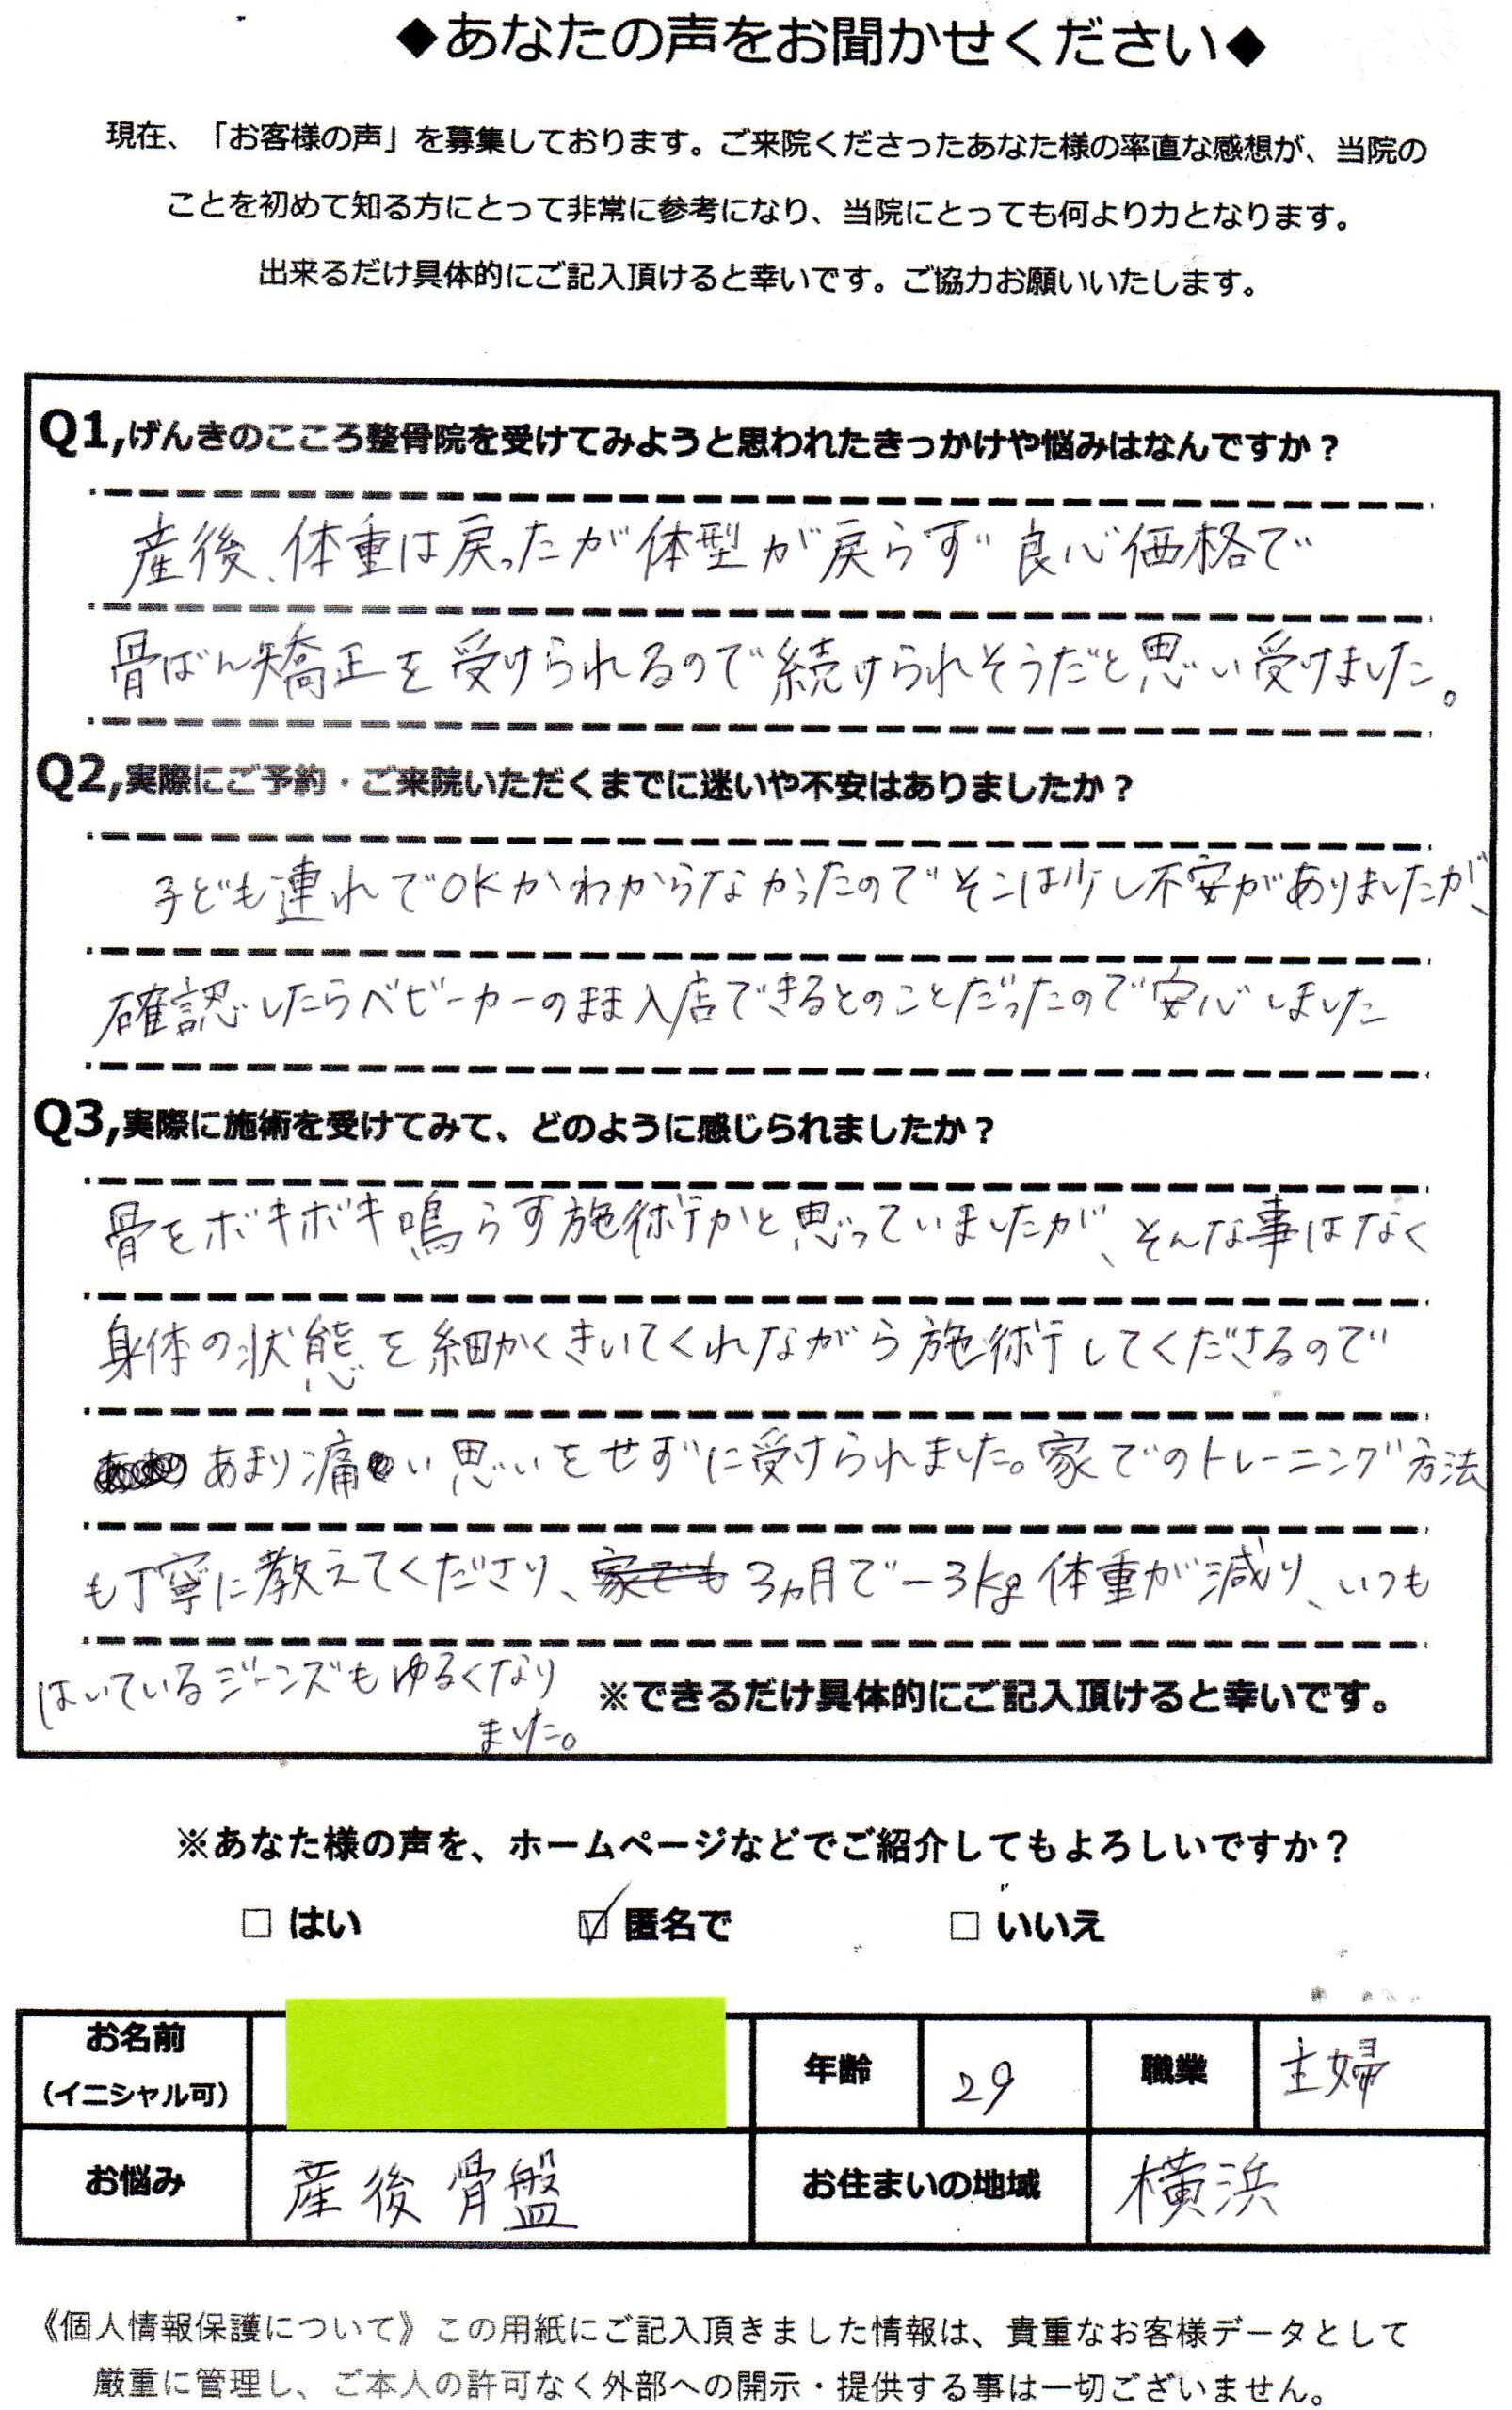 ◆あなたの声をお聞かせください◆
現在、「お客様の声」を募集しております。ご来院くださったあなた様の率直な感想が、当院の
ことを初めて知る方にとって非常に参考になり、当院にとっても何より力となります。
出来るだけ具体的にご記入頂けると幸いです。ご協力お願いいたします。
Q1,げんきのこころ整骨院を受けてみようと思われたきっかけや悩みはなんですか？
産後、体重は戻ったが体型が戻らず良心価格で
骨ばん矯正を受けられるので続けられそうだと思い受けました。
Q2,実際にご予約・ご来院いただくまでに迷いや不安はありましたか？
子ども連れでOKかわからなかったのでそこは少し不安がありましたが、
確認したらベビーカーのまま入店できるとのことだったので安心しました
Q3,実際に施術を受けてみて、どのように感じられましたか？
骨をボキボキ鳴らす施術かと思っていましたが、そんな事はなく
身体の状態を細かくきいてくれながら施術してくださるので
あまり痛い思いをせずに受けられました。家でのトレーニング方法
も丁寧に教えてくださり、家でも3ヵ月で-3kg体重が減り、いつも
はいているジーンズもゆるくなり
ました。
※できるだけ具体的にご記入頂けると幸いです。
※あなた様の声を、ホームページなどでご紹介してもよろしいですか？
□ はい ☑ 匿名で □ いいえ
お名前
（イニシャル可）
年齢 29 職業 主婦
お悩み 産後骨盤 お住まいの地域 横浜
《個人情報保護について》この用紙にご記入頂きました情報は、貴重なお客様データとして
厳重に管理し、ご本人の許可なく外部への開示・提供する事は一切ございません。